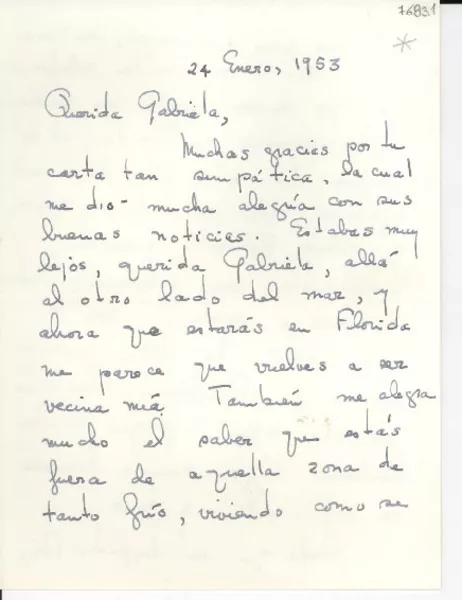 76831
24 Enero, 1953
Querida Gabriela,
Muchas gracias por tu
carta tan simpática, la cual
me dio mucha alegría con sus
buenas noticias. Estabas muy
lejos, querida Gabriela, allá
al otro lado del mar, y
ahora que estarás en Florida
me parece que vuelves a ser
vecina mía. También me alegra
mucho el saber que estás
fuera de aquella zona de
tanto frío, viviendo como se